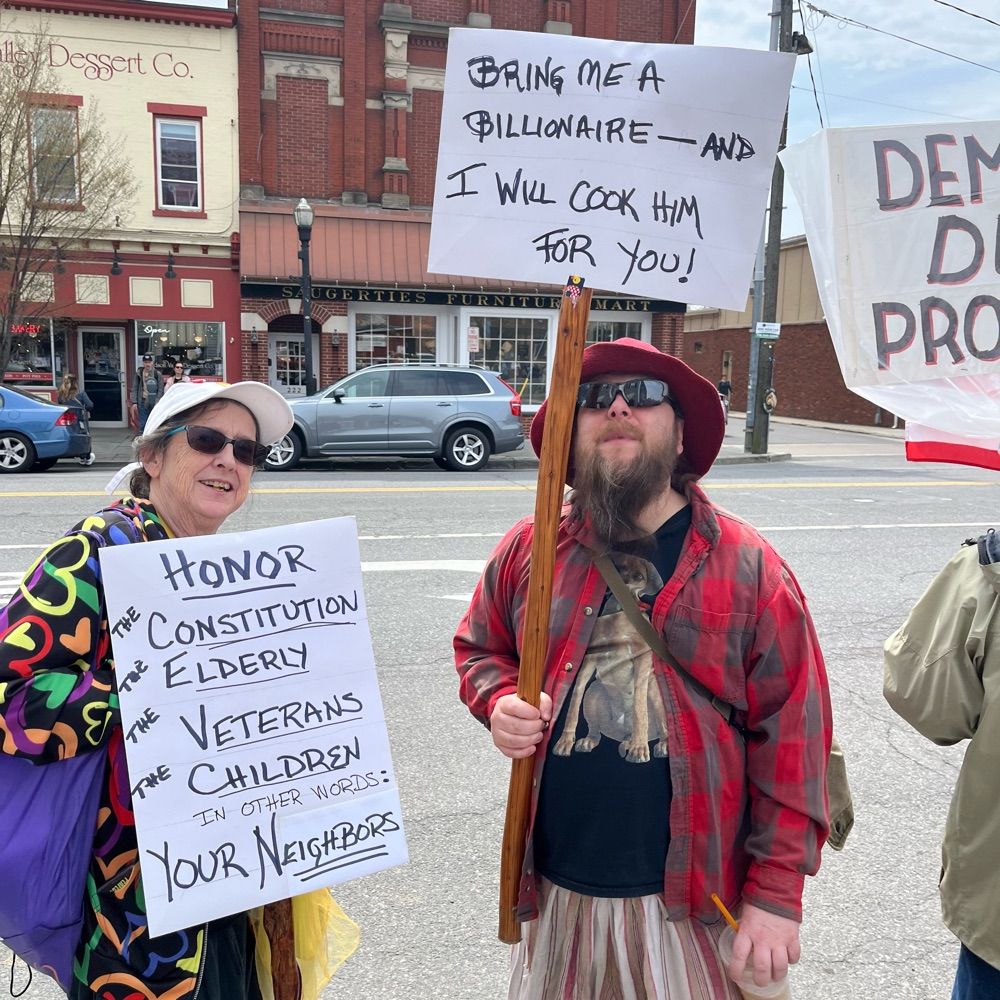 lley Dessert Co.
BRING ME A
BILLIONAIRE — AND
I WILL COOK HIM
FOR YOU!
DEM
DU
PRO
SAUGERTIES FURNITURE MART
Open
322
HONOR
THE CONSTITUTION
THE ELDERLY
THE VETERANS
THE CHILDREN
IN OTHER WORDS:
YOUR NEIGHBORS